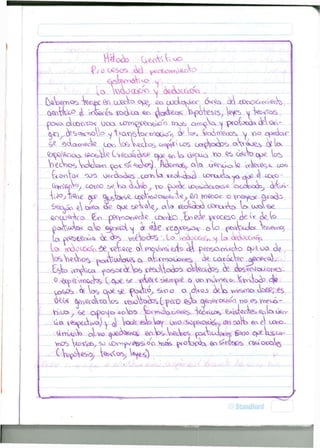 Método Científico
Procesos del pensamiento
sistemático y
La Inducción y deducción.
Debemos tener en cuenta que, en cualquier área del conocimiento
científico el interés radica en plantear hipótesis, leyes y teorías
para alcanzar una comprensión más amplia y profunda del ori-
gen, desarrollo y transformación de los fenómenos y no quedar-
se solamente con los hechos empíricos captados a través de la
experiencia sensible (recuérdese que en la ciencia no es cierto que los
hechos hablan por sí solos). Además, a la ciencia le interesa con
frontar sus verdades con la realidad concreta ya que el cono-
cimiento, como se ha dicho, no puede considerarse acabado, defini-
tivo, tiene que ajustarse continuamente, en menor o mayor grado
según el área de que se trate, a la realidad concreta la cual se
encuentra en permanente cambio. En este proceso de ir de lo
particular a lo general y de éste regresar a lo particular tenemos
la presencia de dos métodos: La inducción, y la deducción.
La inducción se refiere al movimiento del pensamiento que va de
los hechos particulares a afirmaciones de carácter general.
Esto implica pasar de los resultados obtenidos de observaciones
o experimentos (que se refieren siempre a un número limitado de
casos) de los que se partió, sino a otros de la misma clase; es
decir generaliza los resultados (pero esta generalización no es mecá-
nica, se apoya en las formulaciones teóricas existentes en la cien-
cia respectiva) y al hacer esto hay una superación, un salto en el cono-
cimiento al no quedarnos en los hechos particulares sino que busca-
mos su comprensión más profunda en síntesis racionales
(hipótesis, teorías, leyes)
Standford